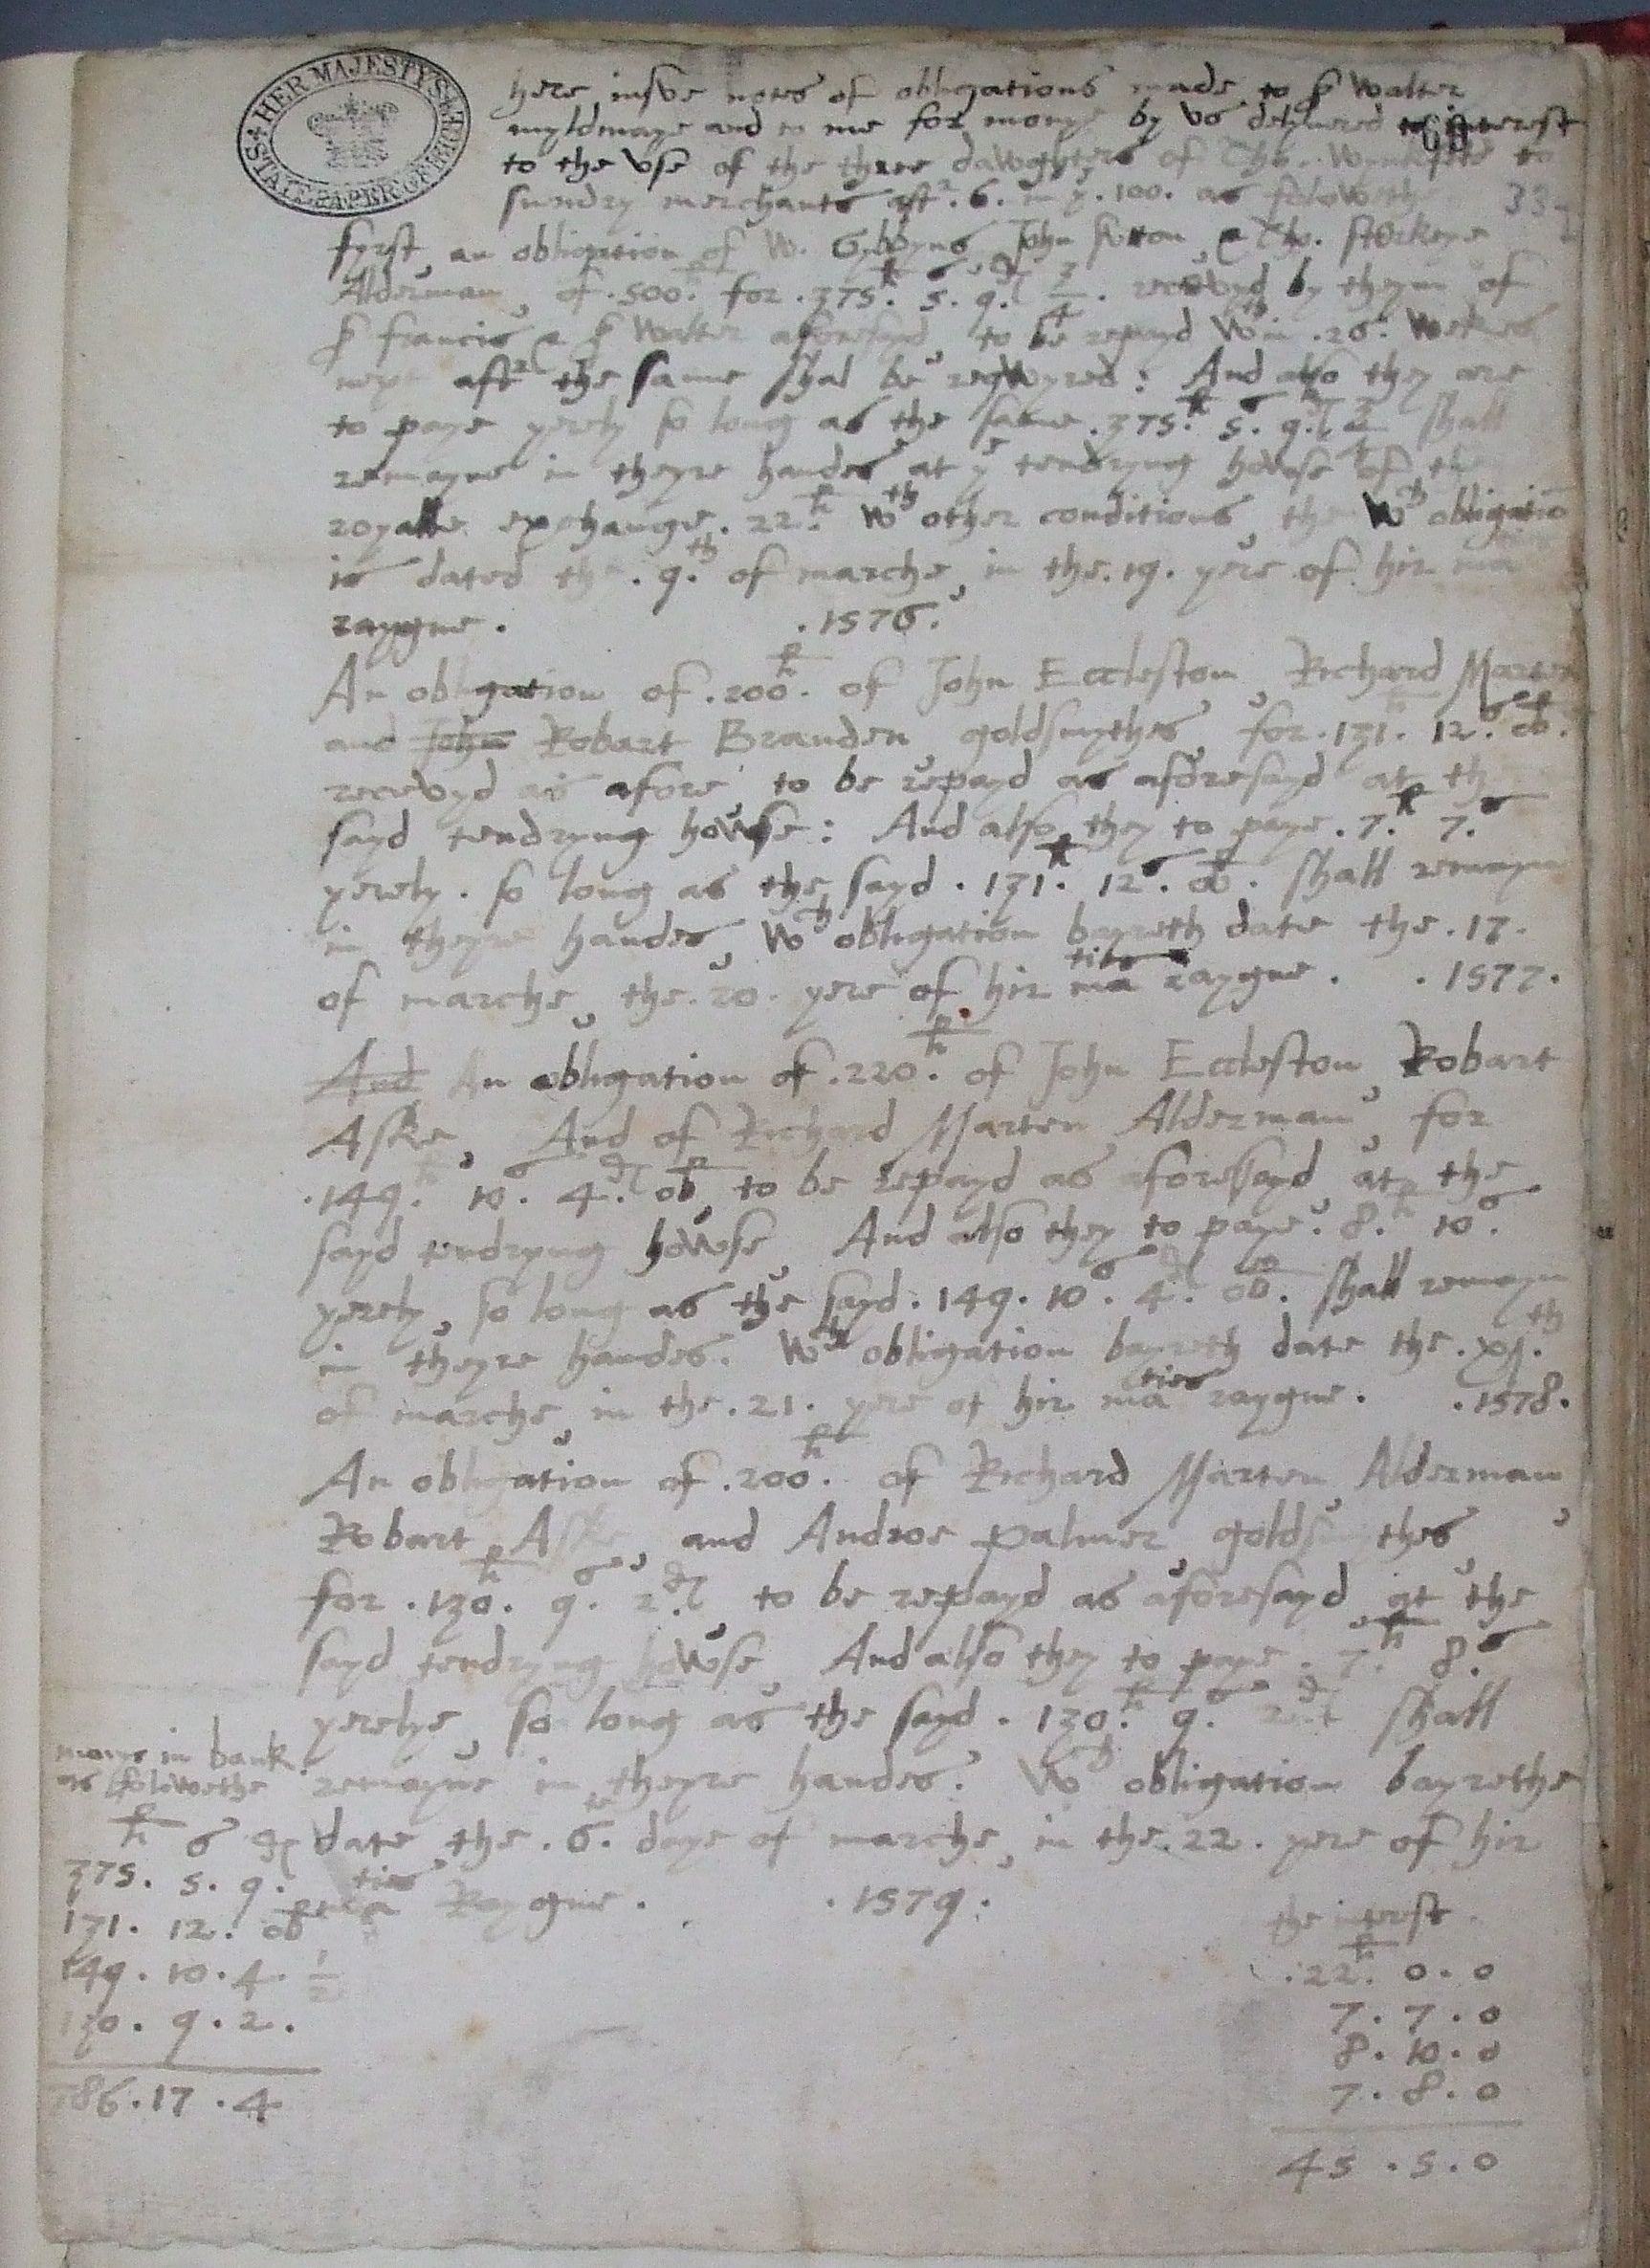 HER MAJESTY'S STATE PAPER OFFICE
here insve notes of obligations made to Sr Walter
myldmaye and to me for monye by vs delyuered to interest
69
to the vse of the three dawghters of Tho.
sundry merchants aftr .6. in ye .100. as foloweth
33
fyrst, an obligation of W. Gybbyns, John & Tho. Starkeye
Alderman, of .500.li for .375.li 5.s 9.d 3/4. recevyd by theym of
Sr francis & Sr Walter aforesayd, to be repayd wthin .26. Wekes
next aftr the same shal be reqwyred: And also they are
to paye yerely so long as the same .375.li 5.s 9.d 3/4 shall
remayne in theyre handes at ye tendryng howse of the
royalle exchange. 22.li wth other conditions, the wch obligatio
is dated the .9.th of marche, in the .19. yere of hir ma
raygne . .1576.
An obligation of .200.li of John Eccleston, Richard Marten
and John Robart Branden, goldsmythes, for .131.li 12.s ob.
recevyd as afore, to be repayd as aforesayd at the
sayd tendryng howse: And also they to paye .7.li 7.s
yerely . so long as the sayd .131.li 12.s ob. shall remayn
in theyre handes, wch obligation bayreth date the .17.
of marche, the .20. yere of hir maties raygne . .1577.
And An obligation of .220.li of John Eccleston, Robart
Aske, And of Richard Marten Alderman, for
.149.li 10.s 4.d ob, to be repayd as aforesayd, at the
sayd tendryng howse, And also they to paye .8.li 10.s
yerely, so long as the sayd .149. 10.s 4.d ob. shall remayn
in theyre handes. Wch obligation bayreth date the .xj.th
of marche, in the .21. yere of hir maties raygne . .1578.
An obligation of .200.li of Richard Marten, Alderman,
Robart Aske, and Andros palmer, goldsmythes,
for .130.li 9.s 2.d to be repayd as aforesayd, at the
sayd tendryng howse, And also they to paye .7.li 8.s
yerelye, so long as the sayd .130.li 9.s 2.d shall
remayne in theyre handes. Wch obligation bayrethe
date the .6.te daye of marche, in the .22. yere of hir
maties Raygne . .1579.
monye in bank
as folowethe
li s d
375. 5. 9.
131. 12. ob
149. 10. 4. 1/2
130. 9. 2.
786. 17. 4
the interest
.22.li 0. 0
7. 7. 0
8. 10. 0
7. 8. 0
45. 5. 0